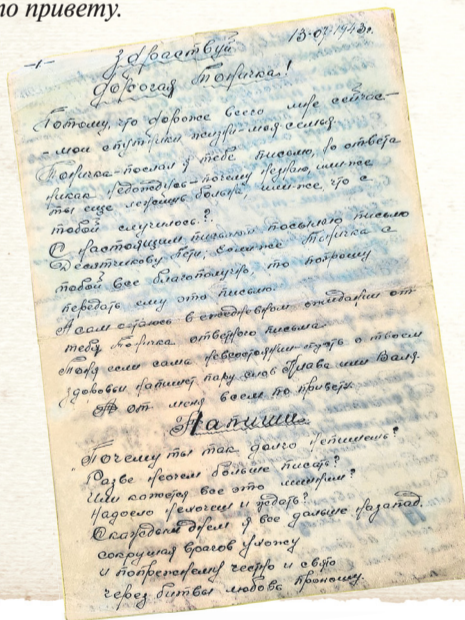 по привету.
-1-
13-07-1943г.
Здраствуй
дорогая Тонечка!
Потому, что дороже всего мне сейчас-
-мои спутники жизни-моя семья
Тонечка-послал я тебе письмо, но ответа
никак недождусь-почему незнаю, или-же
ты еще лежишь больна, или-же, что с
тобой случилось??
С настоящим письмом посылаю письмо
Десятникову Пети, если-же Тонечка с
тобой все благополучно, то попрошу
передать ему это письмо.
А сам остаюсь в ежедневном ожидании от
тебя Тонечка ответного письма.
Тоня если сама невсостоянии о твоем
здоровьи напишет пару слов Клава или Валя
А от меня всем по привету.
Напиши
"Почему ты так долго непишешь?
Разве нечем больше писать?
Или кажется все это минким?
Надоело нехочеш и ждать?
Скаждым днем я все дальше назапад
сокрушая врагов ухожу
и попрежнему честно и свято
через битвы любовь проношу.